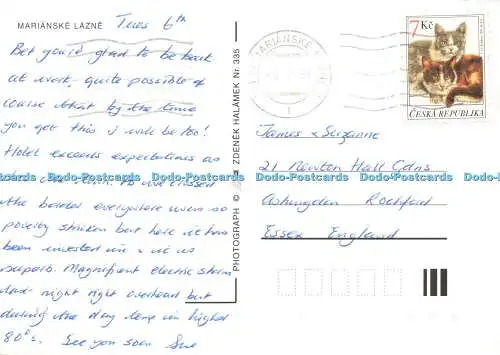 MARIÁNSKÉ LAZNĚ
Tues 6th
Bet you're glad to be back
at work, quite possible of
course that by the time
you get this I will be too!
Hotel exceeds expectations as
As we crossed
the border everywhere was so
poverty striken but here it has been
been invested in & it is
superb. Magnificent electric storm
last night right overhead but
during the day temp in higher
80°s. See you soon Sue
PHOTOGRAPH © ZDENĚK HALÁMEK Nr 335
MARIÁNSKÉ
7 Kč
ČESKÁ REPUBLIKA
James & Suzanne
21 Newton Hall Gdns
Ashingdon Rochford
Essex England
Dodo-Postcards Dodo-Postcards Dodo-Postcards Dodo-Postcards Dodo-Postcards